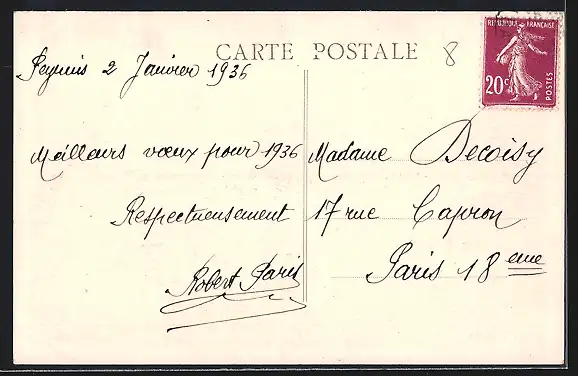 CARTE POSTALE
8
REPUBLIQUE FRANÇAISE
20c
POSTES
2 Janvier 1936
Meilleurs vœux pour 1936
Respectueusement
Robert Paris
Madame Decoisy
17 rue Capron
Paris 18eme